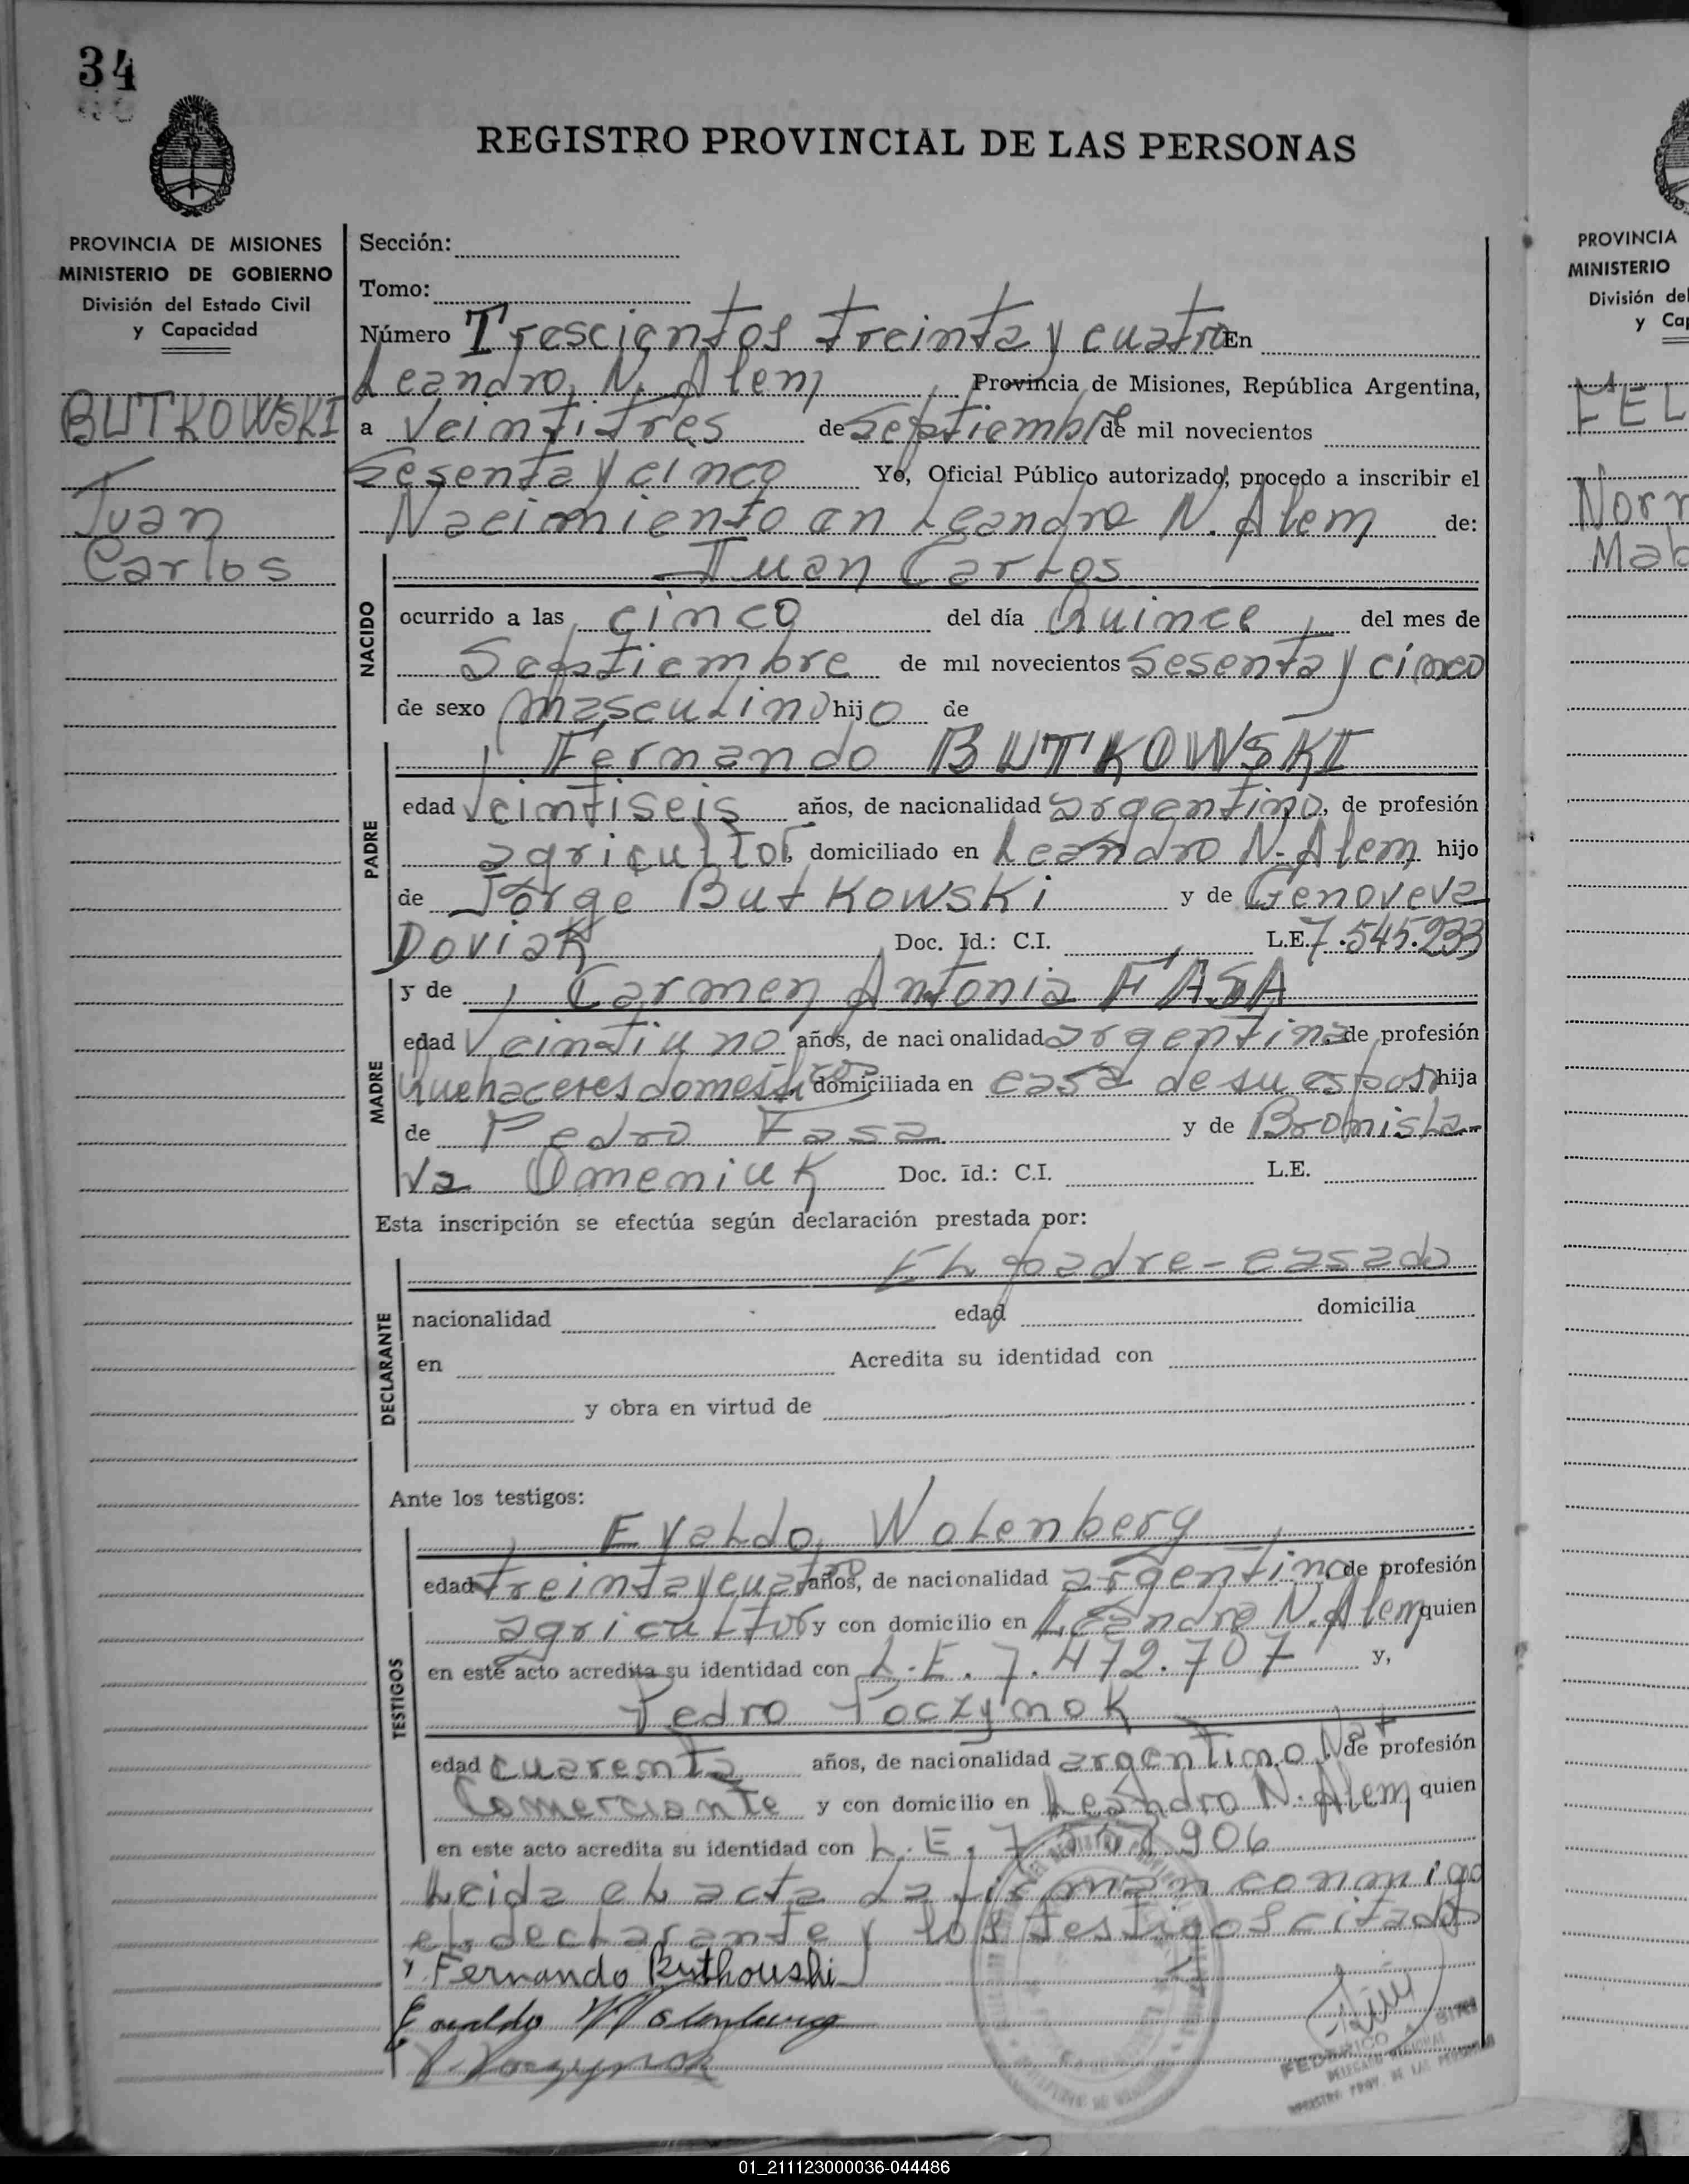 34
REGISTRO PROVINCIAL DE LAS PERSONAS
PROVINCIA DE MISIONES
MINISTERIO DE GOBIERNO
División del Estado Civil
y Capacidad
BUTKOWSKI
Juan
Carlos
Sección:
Tomo:
Número Trescientos treinta y cuatro En
Leandro N. Alem Provincia de Misiones, República Argentina,
a Veintitres de Septiembre de mil novecientos
Sesenta y cinco Yo, Oficial Público autorizado, procedo a inscribir el
Nacimiento en Leandro N. Alem de:
NACIDO
Juan Carlos
ocurrido a las cinco del día Quince del mes de
Septiembre de mil novecientos Sesenta y cinco
de sexo masculino hijo de
PADRE
Fernando BUTKOWSKI
edad Veintiseis años, de nacionalidad argentino, de profesión
agricultor, domiciliado en Leandro N. Alem hijo
de Jorge Butkowski y de Genoveva
Doviak Doc. Id.: C.I. L.E. 7.545.233
MADRE
y de Carmen Antonia FASA
edad Veintiuno años, de nacionalidad argentina de profesión
Quehaceres domesticos domiciliada en casa de su esposo hija
de Pedro Fasa y de Bronisla-
va Omeniuk Doc. Id.: C.I. L.E.
Esta inscripción se efectúa según declaración prestada por:
DECLARANTE
El padre - casado
nacionalidad edad domicilia
en Acredita su identidad con
y obra en virtud de
Ante los testigos:
TESTIGOS
Evaldo Wolenberg
edad treinta y cuatro años, de nacionalidad argentino de profesión
agricultor y con domicilio en Leandro N. Alem quien
en este acto acredita su identidad con L.E. 7.472.707 y,
Pedro Poczynok
edad cuarenta años, de nacionalidad argentino Nat de profesión
Comerciante y con domicilio en Leandro N. Alem quien
en este acto acredita su identidad con L.E. 7 906
Leida el acta la firman conmigo
el declarante y los testigos citados
Fernando Buthouski
Evaldo Wolenberg
P. Poczynok
FEDERICO A.
DELEGADO REGIONAL
REGISTRO PROV. DE LAS PERSONAS
PROVINCIA
MINISTERIO
División del
y Cap
FEL
Norm
Mab
01_211123000036-044486